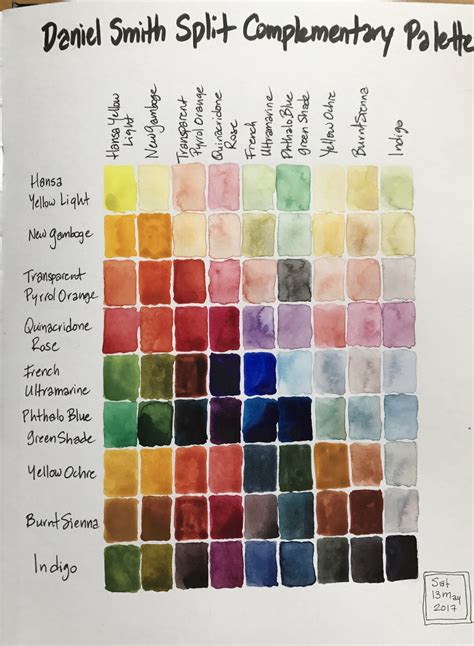 Daniel Smith Split Complementary Palette
Hansa Yellow
Light
New Gamboge
Transparent
Pyrrol Orange
Quinacridone
Rose
French
Ultramarine
Phthalo Blue
green Shade
Yellow Ochre
Burnt Sienna
Indigo
Hansa
Yellow Light
New Gamboge
Transparent
Pyrrol Orange
Quinacridone
Rose
French
Ultramarine
Phthalo Blue
green Shade
Yellow Ochre
Burnt Sienna
Indigo
Sat
13 May
2017